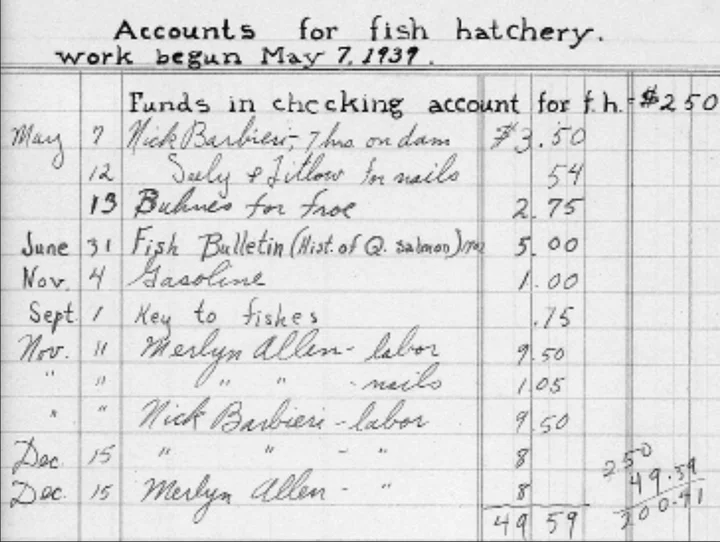 Accounts for fish hatchery.
work begun May 7, 1939.
Funds in checking account for f.h. - $250
May 7 Nick Barbieri - 7 hrs on dam $3.50
12 Seely & Titlow for nails 54
13 Buhnes for froe 2.75
June 31 Fish Bulletin (Hist. of Q. Salmon) 5.00
Nov. 4 Gasoline 1.00
Sept. 1 Key to fishes .75
Nov. 11 Merlyn Allen - labor 9.50
" " " " - nails 1.05
" " Nick Barbieri - labor 9.50
Dec. 15 " " - " 8
Dec. 15 Merlyn Allen - " 8
49 59
250
49.59
200.41